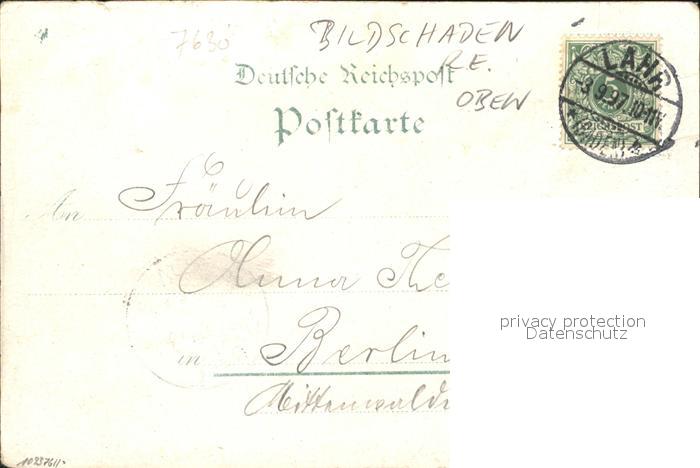 7630
BILDSCHADEN
RE.
OBEN
Deutsche Reichspost
Postkarte
LAHR
9.97.10-11V.
REICHSPOST
An Fräulein
Anna The
in Berlin
Mittenwalde
privacy protection
Datenschutz